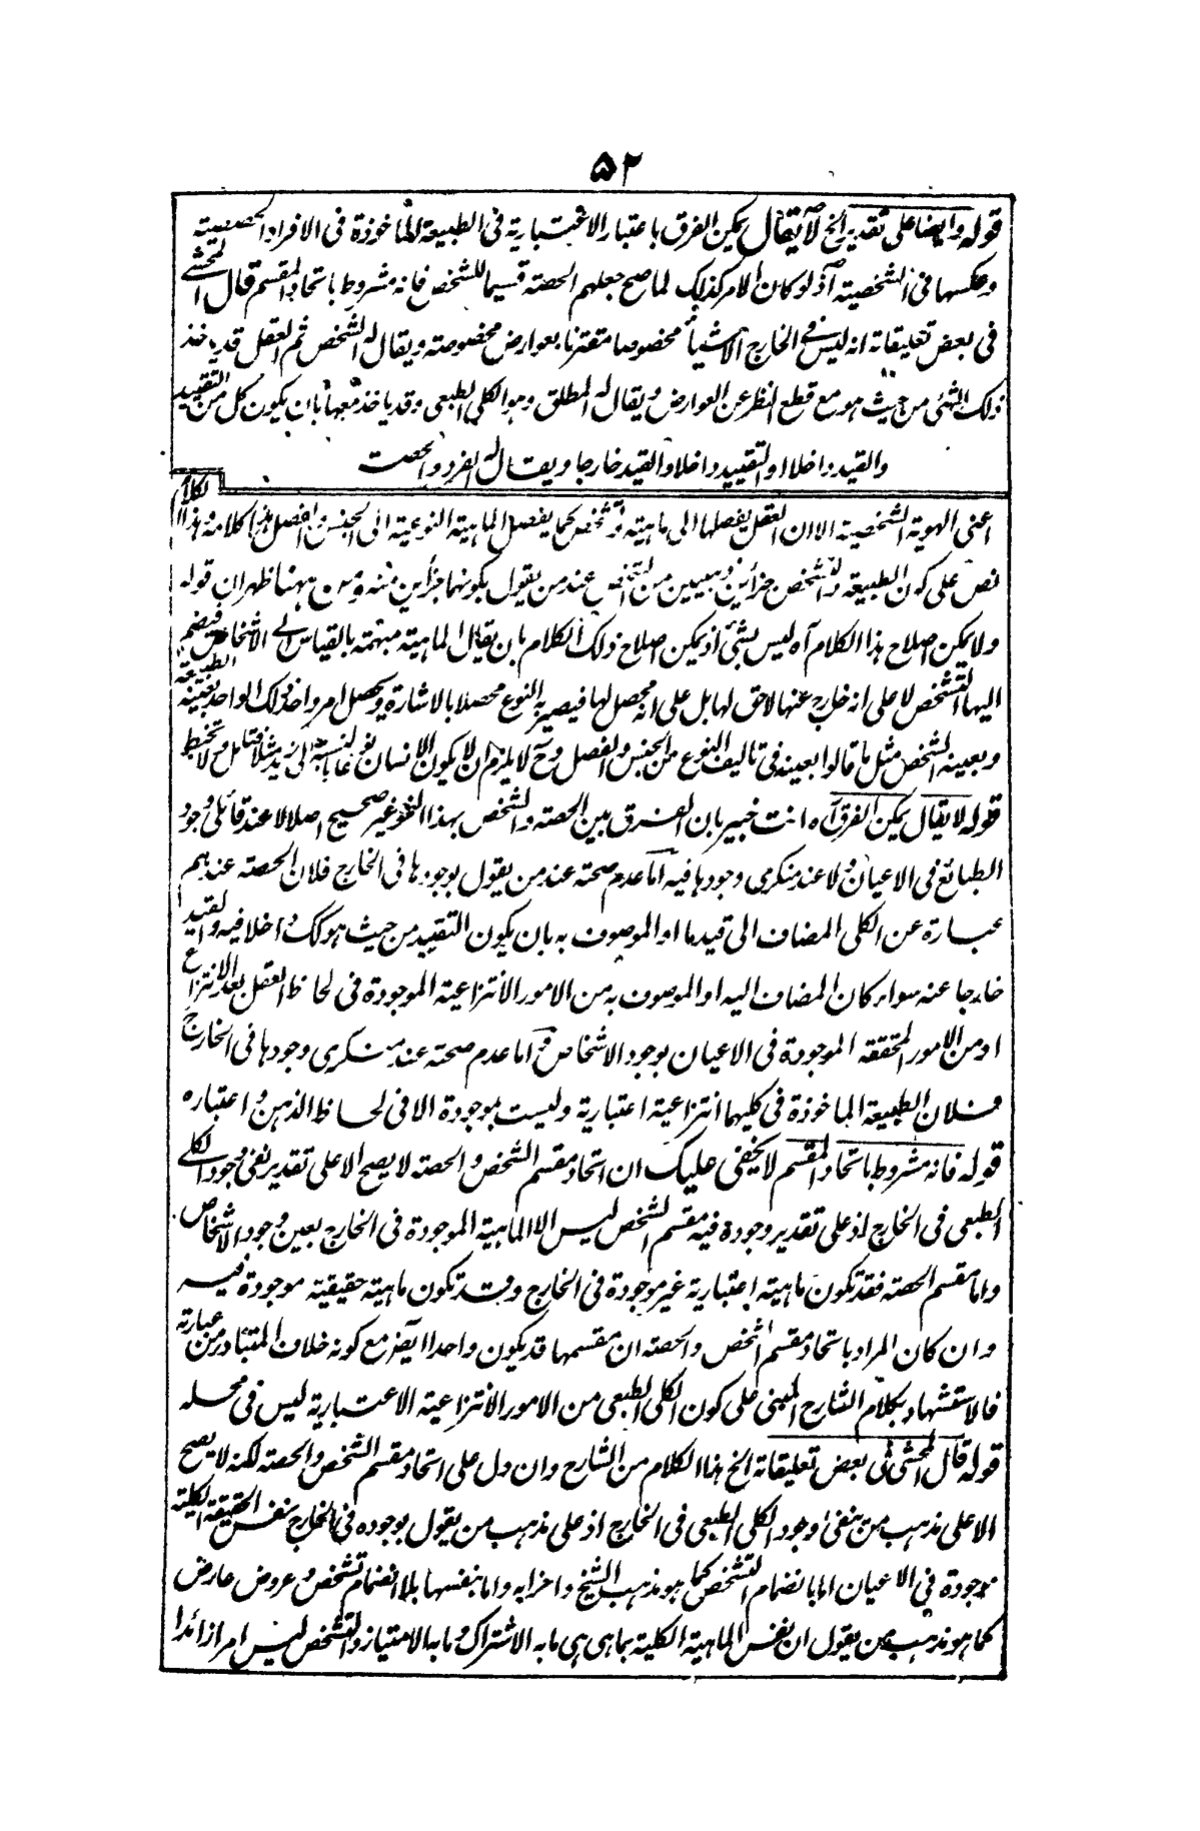 ۵۲
قوله وايضا على تقدير الخ لا يقال يمكن الفرق باعتبار الاعتبارية فى الطبيعة الماخوذة فى الافراد الحصصية
وعكسها فى الشخصية اذ لو كان الامر كذلك لما صح جعلهم الحصة قسيما للشخص فانه مشروط باتحاد المقسم قال المحشى
فى بعض تعليقاته انه ليس فى الخارج الا شيأ مخصوصا مقترنا بعوارض مخصوصة ويقال له الشخص ثم العقل قد ياخذ
ذلك الشئ من حيث هو مع قطع النظر عن العوارض ويقال له المطلق وهو الكلى الطبعى وقد ياخذ معها بان يكون كل من التقييد
والقيد داخلا او التقييد داخلا والقيد خارجا ويقال له الفرد والحصة
اعنى الهوية الشخصية الا ان العقل يفصلها الى ماهية وتشخص كما يفصل الماهية النوعية الى الجنس والفصل هذا كلامه وهذا الكلام
نص على كون الطبيعة والتشخص جزأين ذهنيين من الشخص عند من يقول بكونهما جزأين منه ومن ههنا ظهر ان قوله
ولا يمكن اصلاح هذا الكلام آه ليس بشئ اذ يمكن اصلاح ذلك الكلام بان يقال الماهية مبهمة بالقياس الى الاشخاص فيضم
اليها التشخص لا على انه خارج عنها لاحق لها بل على انه محصل لها فيصير به النوع محصلا بالاشارة ويحصل امر واحد ذلك الواحد بعينه الطبيعة
وبعينه الشخص مثل ما قالوا بعينه فى تاليف النوع من الجنس والفصل وح لا يلزم ان لا يكون الانسان نوعا بالنسبة الى زيد مثلا فتامل ولا تخبط
قوله لا يقال يمكن الفرق آه انت خبير بان الفرق بين الحصة والشخص بهذا النحو غير صحيح اصلا لا عند قائلى وجود
الطبائع فى الاعيان ولا عند منكرى وجودها فيه اما عدم صحته عند من يقول بوجودها فى الخارج فلان الحصة عندهم
عبارة عن الكلى المضاف الى قيد ما او الموصوف به بان يكون التقييد من حيث هو كك داخلا فيه والقيد
خارجا عنه سواء كان المضاف اليه او الموصوف به من الامور الانتزاعية الموجودة فى لحاظ العقل بعد الانتزاع
او من الامور المتحققة الموجودة فى الاعيان بوجود الاشخاص واما عدم صحته عند منكرى وجودها فى الخارج
فلان الطبيعة الماخوذة فى كليهما انتزاعية اعتبارية وليست بموجودة الا فى لحاظ الذهن واعتباره
قوله فانه مشروط باتحاد المقسم لا يخفى عليك ان اتحاد مقسم الشخص والحصة لا يصح الا على تقدير نفى وجود الكلى
الطبعى فى الخارج اذ على تقدير وجوده فيه مقسم الشخص ليس الا الماهية الموجودة فى الخارج بعين وجود الاشخاص
واما مقسم الحصة فقد تكون ماهية اعتبارية غير موجودة فى الخارج وقد تكون ماهية حقيقية موجودة فيه
وان كان المراد باتحاد مقسم الشخص والحصة ان مقسمها قد يكون واحدا ايضا فمع كونه خلاف المتبادر من عبارته
فالاستشهاد بكلام الشارح المبنى على كون الكلى الطبعى من الامور الانتزاعية الاعتبارية ليس فى محله
قوله قال المحشى فى بعض تعليقاته الخ هذا الكلام من الشارح وان دل على اتحاد مقسم الشخص والحصة لكنه لا يصح
الا على مذهب من ينفى وجود الكلى الطبعى فى الخارج اذ على مذهب من يقول بوجوده فى الخارج نفس الحقيقة الكلية
موجودة فى الاعيان اما بانضمام التشخص كما هو مذهب الشيخ واحزابه واما بنفسها بلا انضمام تشخص وعروض عارض
كما هو مذهب من يقول ان نفس الماهية الكلية بما هى هى ما به الاشتراك وما به الامتياز والتشخص ليس امرا زائدا